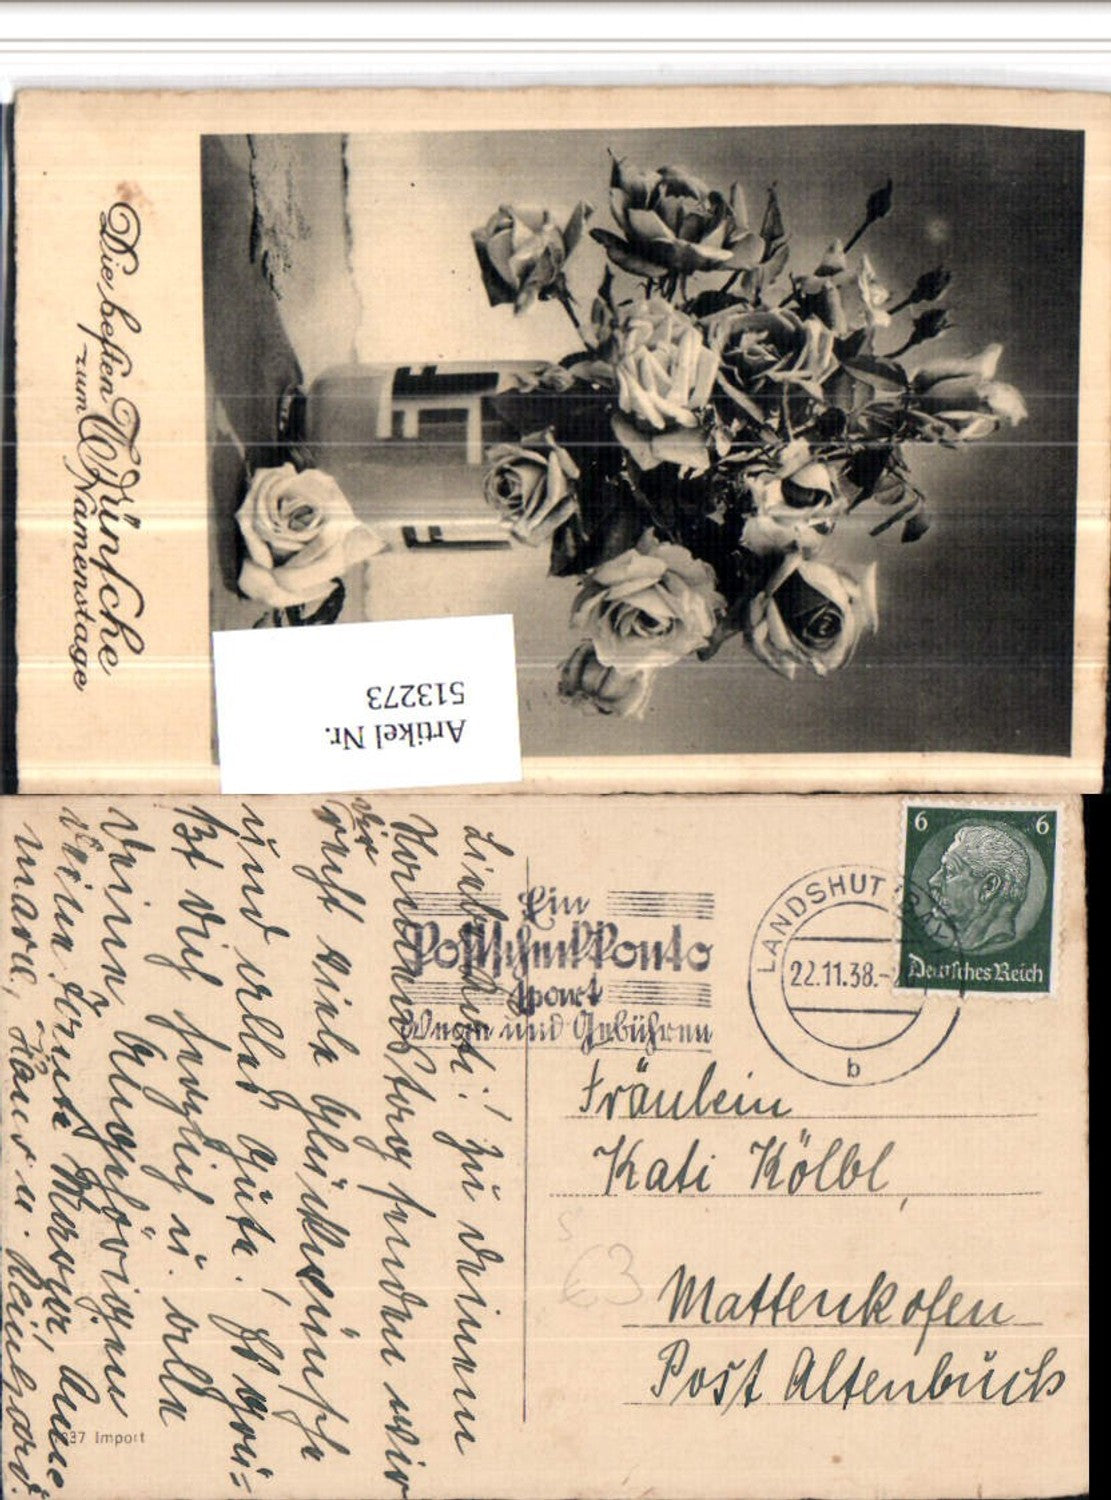 Die besten Wünsche
zum Namenstage
Artikel Nr.
513273
Liebe Kati! Zu deinem
Namenstag senden wir
dir recht viele Glückwünsche
und alles Gute! Es grü-
ßt dich herzlich u. alle
deine Angehörigen
deine Freunde
Hans u. Reinhard.
Ein
Postscheckkonto
spart
Wege und Gebühren
LANDSHUT
22.11.38.
b
6 6
Deutsches Reich
Fräulein
Kati Kölbl,
Mattenkofen
Post Altenbuch
63
37 Import